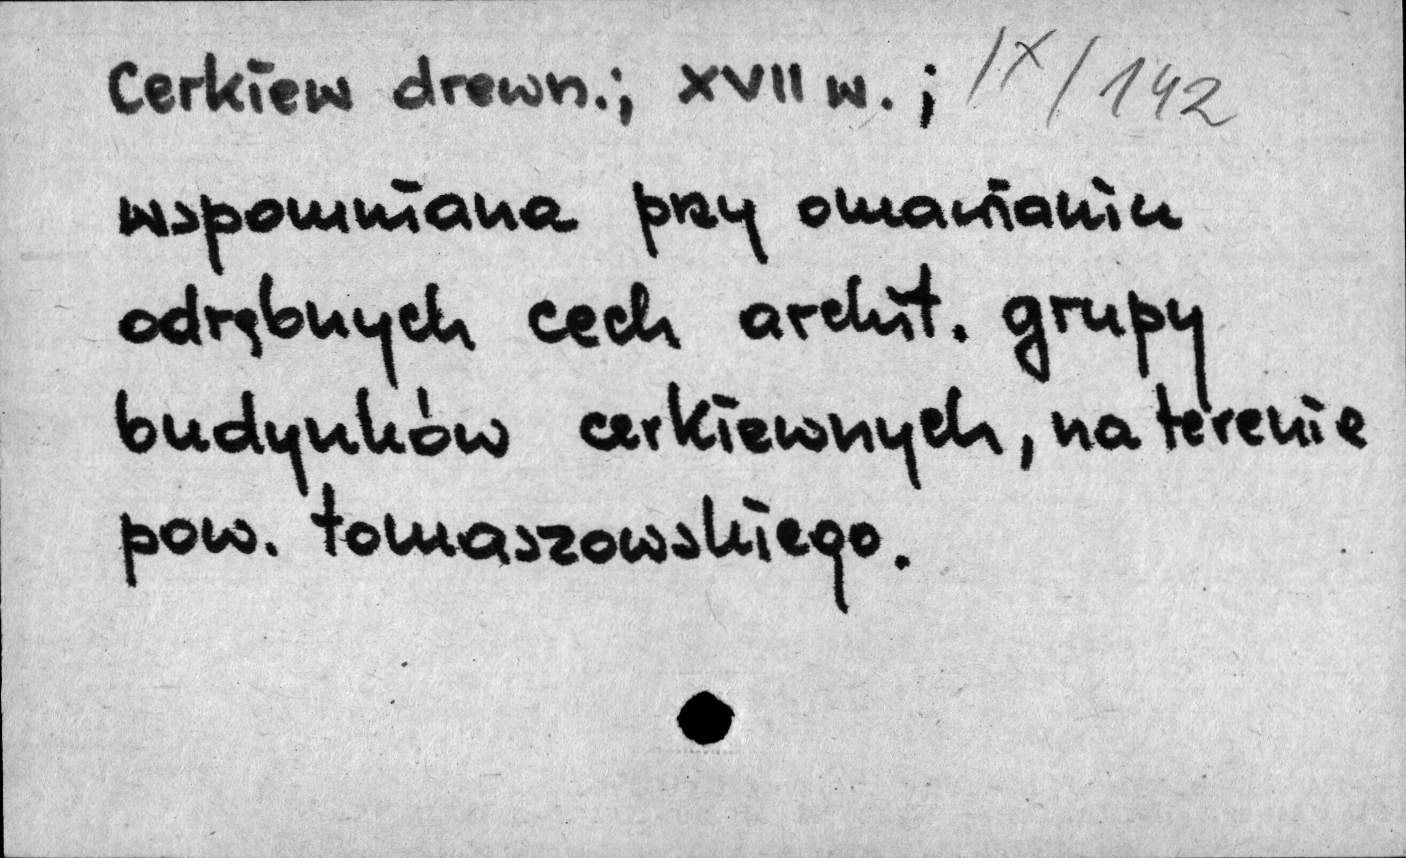 Cerkiew drewn.; XVII w.; IX/142
wspomniana przy omawianiu
odrębnych cech archit. grupy
budynków cerkiewnych, na terenie
pow. tomaszowskiego.